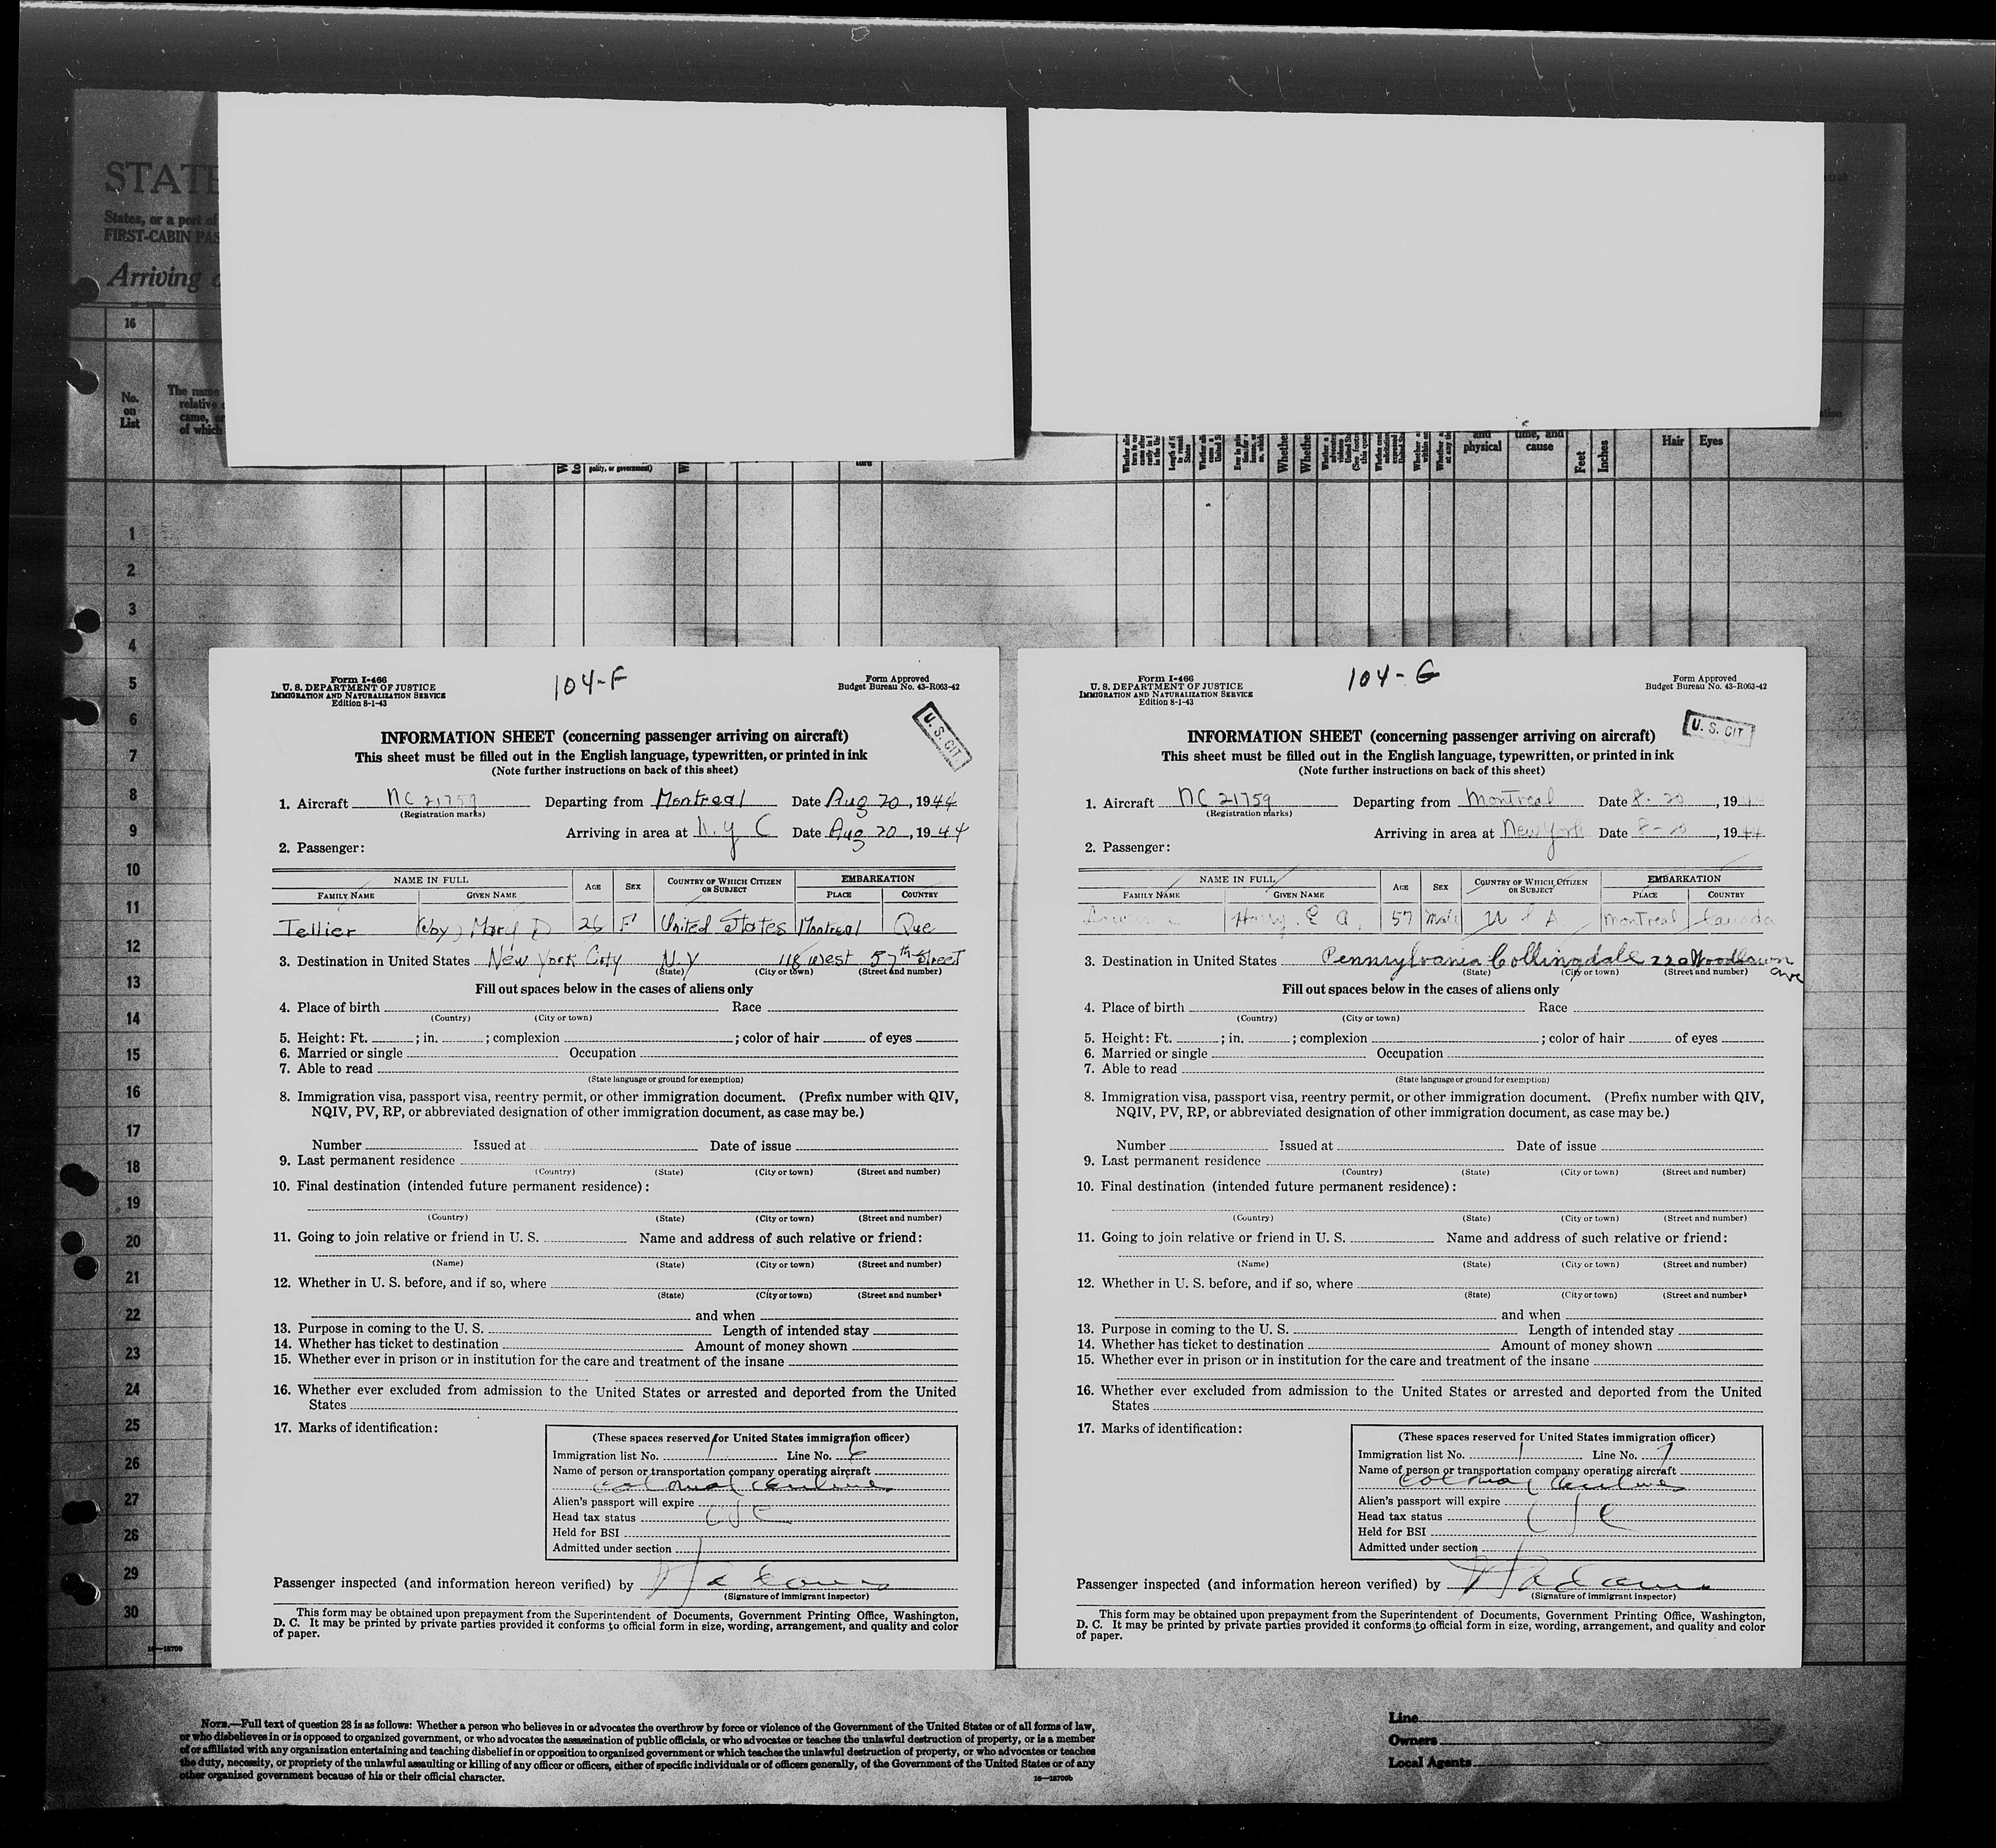 STATE
States, or a port of
FIRST-CABIN PAS
Arriving
16
No.
on
List
The name
relative
came, or
of which
pality, or government)
physical
time, and
cause
Feet
Inches
Hair
Eyes
1
2
3
4
5
6
7
8
9
10
11
12
13
14
15
16
17
18
19
20
21
22
23
24
25
26
27
28
29
30
16—18709
Form I-466
U. S. DEPARTMENT OF JUSTICE
IMMIGRATION AND NATURALIZATION SERVICE
Edition 8-1-43
104-F
Form Approved
Budget Bureau No. 43-R063-42
U. S. CIT.
INFORMATION SHEET (concerning passenger arriving on aircraft)
This sheet must be filled out in the English language, typewritten, or printed in ink
(Note further instructions on back of this sheet)
1. Aircraft NC 21759 Departing from Montreal Date Aug 20, 1944
(Registration marks)
Arriving in area at N.Y C Date Aug 20, 1944
2. Passenger:
NAME IN FULL AGE SEX COUNTRY OF WHICH CITIZEN OR SUBJECT EMBARKATION
FAMILY NAME GIVEN NAME PLACE COUNTRY
Tellier Mary D 26 F United States Montreal Que
3. Destination in United States New York City N.Y 118 West 57th Street
(State) (City or town) (Street and number)
Fill out spaces below in the cases of aliens only
4. Place of birth Race
(Country) (City or town)
5. Height: Ft. ; in. ; complexion ; color of hair of eyes
6. Married or single Occupation
7. Able to read
(State language or ground for exemption)
8. Immigration visa, passport visa, reentry permit, or other immigration document. (Prefix number with QIV,
NQIV, PV, RP, or abbreviated designation of other immigration document, as case may be.)
Number Issued at Date of issue
9. Last permanent residence
(Country) (State) (City or town) (Street and number)
10. Final destination (intended future permanent residence):
(Country) (State) (City or town) (Street and number)
11. Going to join relative or friend in U. S. Name and address of such relative or friend:
(Name) (State) (City or town) (Street and number)
12. Whether in U. S. before, and if so, where
(State) (City or town) (Street and number)
and when
13. Purpose in coming to the U. S. Length of intended stay
14. Whether has ticket to destination Amount of money shown
15. Whether ever in prison or in institution for the care and treatment of the insane
16. Whether ever excluded from admission to the United States or arrested and deported from the United
States
17. Marks of identification:
(These spaces reserved for United States immigration officer)
Immigration list No. 1 Line No. 6
Name of person or transportation company operating aircraft
Colonial Airlines
Alien's passport will expire
Head tax status USC
Held for BSI
Admitted under section
Passenger inspected (and information hereon verified) by
(Signature of immigrant inspector)
This form may be obtained upon prepayment from the Superintendent of Documents, Government Printing Office, Washington,
D. C. It may be printed by private parties provided it conforms to official form in size, wording, arrangement, and quality and color
of paper.
Form I-466
U. S. DEPARTMENT OF JUSTICE
IMMIGRATION AND NATURALIZATION SERVICE
Edition 8-1-43
104-G
Form Approved
Budget Bureau No. 43-R063-42
U. S. CIT.
INFORMATION SHEET (concerning passenger arriving on aircraft)
This sheet must be filled out in the English language, typewritten, or printed in ink
(Note further instructions on back of this sheet)
1. Aircraft NC 21759 Departing from Montreal Date 8-20, 1944
(Registration marks)
Arriving in area at New York Date 8-20, 1944
2. Passenger:
NAME IN FULL AGE SEX COUNTRY OF WHICH CITIZEN OR SUBJECT EMBARKATION
FAMILY NAME GIVEN NAME PLACE COUNTRY
Harry. E A. 57 Male U S A Montreal Canada
3. Destination in United States Pennsylvania Collingdale 220 Woodlawn
ave
(State) (City or town) (Street and number)
Fill out spaces below in the cases of aliens only
4. Place of birth Race
(Country) (City or town)
5. Height: Ft. ; in. ; complexion ; color of hair of eyes
6. Married or single Occupation
7. Able to read
(State language or ground for exemption)
8. Immigration visa, passport visa, reentry permit, or other immigration document. (Prefix number with QIV,
NQIV, PV, RP, or abbreviated designation of other immigration document, as case may be.)
Number Issued at Date of issue
9. Last permanent residence
(Country) (State) (City or town) (Street and number)
10. Final destination (intended future permanent residence):
(Country) (State) (City or town) (Street and number)
11. Going to join relative or friend in U. S. Name and address of such relative or friend:
(Name) (State) (City or town) (Street and number)
12. Whether in U. S. before, and if so, where
(State) (City or town) (Street and number)
and when
13. Purpose in coming to the U. S. Length of intended stay
14. Whether has ticket to destination Amount of money shown
15. Whether ever in prison or in institution for the care and treatment of the insane
16. Whether ever excluded from admission to the United States or arrested and deported from the United
States
17. Marks of identification:
(These spaces reserved for United States immigration officer)
Immigration list No. 1 Line No. 7
Name of person or transportation company operating aircraft
Colonial Airlines
Alien's passport will expire
Head tax status USC
Held for BSI
Admitted under section
Passenger inspected (and information hereon verified) by
(Signature of immigrant inspector)
This form may be obtained upon prepayment from the Superintendent of Documents, Government Printing Office, Washington,
D. C. It may be printed by private parties provided it conforms to official form in size, wording, arrangement, and quality and color
of paper.
NOTE.—Full text of question 28 is as follows: Whether a person who believes in or advocates the overthrow by force or violence of the Government of the United States or of all forms of law,
or who disbelieves in or is opposed to organized government, or who advocates the assassination of public officials, or who advocates or teaches the unlawful destruction of property, or is a member
of or affiliated with any organization entertaining and teaching disbelief in or opposition to organized government or which teaches the unlawful destruction of property, or who advocates or teaches
the duty, necessity, or propriety of the unlawful assaulting or killing of any officer or officers, either of specific individuals or of officers generally, of the Government of the United States or of any
other organized government because of his or their official character.
16—18709b
Line
Owners
Local Agents